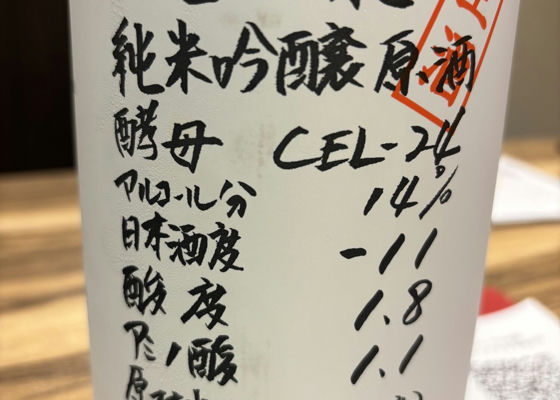 純米吟醸原酒
酵母 CEL-24
アルコール分 14%
日本酒度 -11
酸度 1.8
アミノ酸 1.1